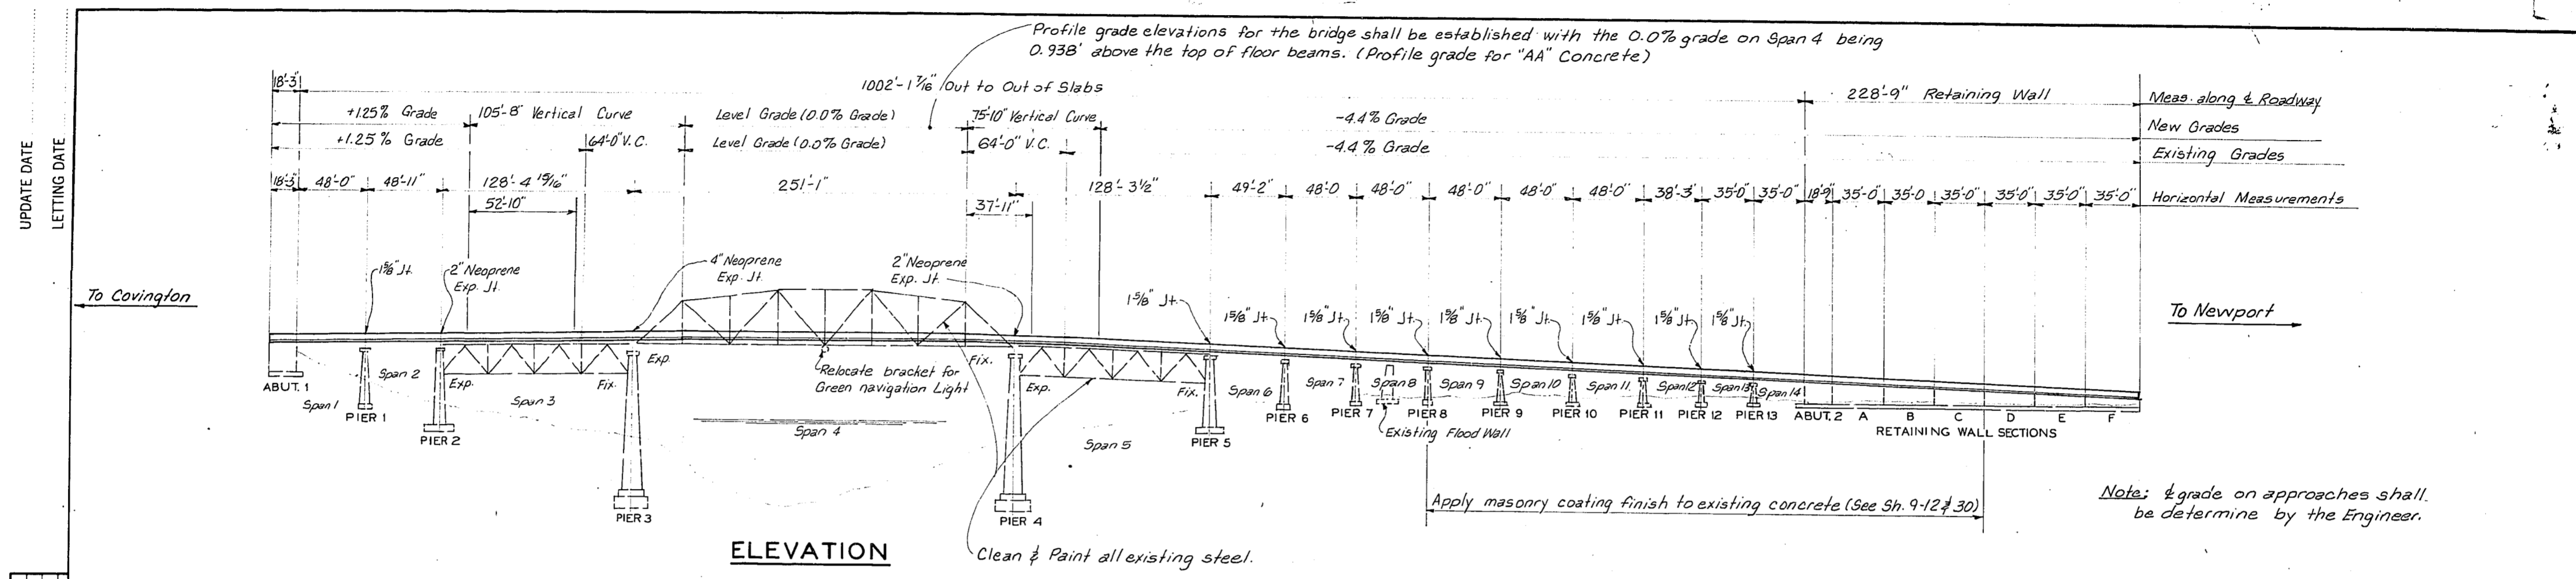 UPDATE DATE
LETTING DATE
Profile grade elevations for the bridge shall be established with the 0.0% grade on Span 4 being
0.938' above the top of floor beams. (Profile grade for "AA" Concrete)
18'-3"
1002'-1 7/16" Out to Out of Slabs
228'-9" Retaining Wall
Meas. along ℄ Roadway
+1.25% Grade
105'-8" Vertical Curve
Level Grade (0.0% Grade)
75'-10" Vertical Curve
-4.4% Grade
New Grades
+1.25% Grade
64'-0" V.C.
Level Grade (0.0% Grade)
64'-0" V.C.
-4.4% Grade
Existing Grades
18'-3" 48'-0" 48'-11" 128'-4 15/16" 251'-1" 128'-3½" 49'-2" 48'-0 48'-0" 48'-0" 48'-0" 48'-0" 38'-3" 35'-0" 35'-0" 18'-9" 35'-0" 35'-0 35'-0" 35'-0" 35'-0" 35'-0" Horizontal Measurements
52'-10"
37'-11"
1⅝" Jt.
2" Neoprene
Exp. Jt.
4" Neoprene
Exp. Jt.
2" Neoprene
Exp. Jt.
1⅝" Jt.
1⅝" Jt.
1⅝" Jt.
1⅝" Jt.
1⅝" Jt.
1⅝" Jt.
1⅝" Jt.
1⅝" Jt.
1⅝" Jt.
To Covington
To Newport
ABUT. 1
Span 1
PIER 1
Span 2
PIER 2
Exp.
Span 3
Fix.
PIER 3
Exp.
Relocate bracket for
Green navigation Light
Span 4
Fix.
PIER 4
Exp.
Span 5
Fix.
PIER 5
Span 6
PIER 6
Span 7
PIER 7
Span 8
Existing Flood Wall
PIER 8
Span 9
PIER 9
Span 10
PIER 10
Span 11
PIER 11
Span 12
PIER 12
Span 13
PIER 13
Span 14
ABUT. 2
A B C D E F
RETAINING WALL SECTIONS
Apply masonry coating finish to existing concrete (See Sh. 9-12 & 30)
Note: ℄ grade on approaches shall
be determine by the Engineer.
ELEVATION
Clean & Paint all existing steel.